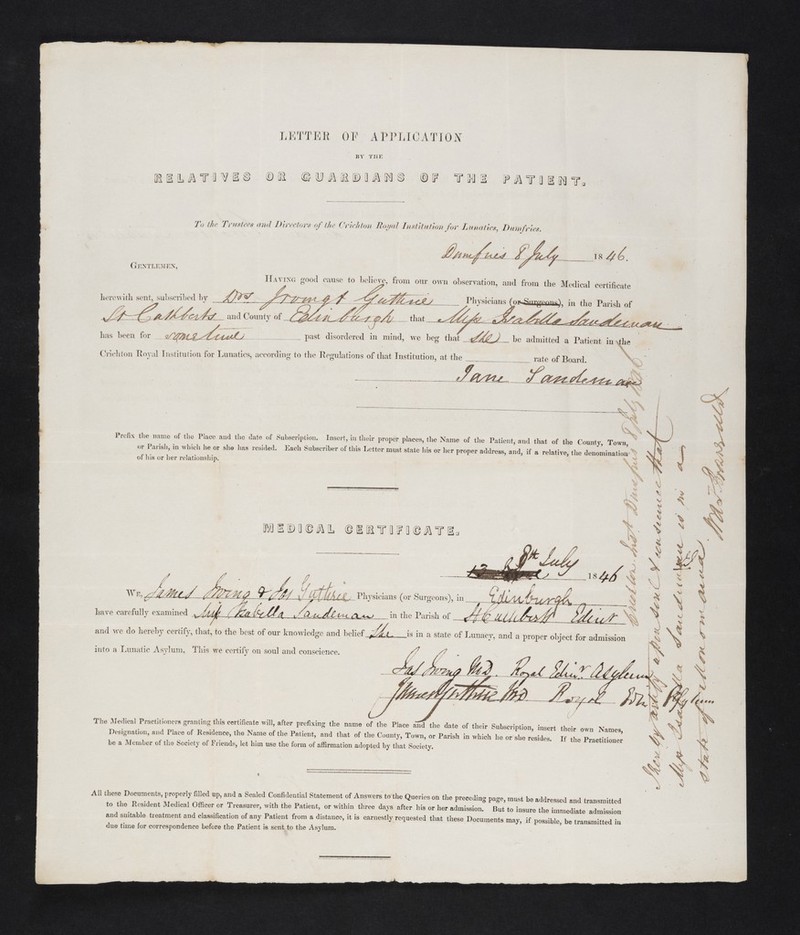 LETTER OF APPLICATION
BY THE
RELATIVES OR GUARDIANS OF THE PATIENT.
To the Trustees and Directors of the Crichton Royal Institution for Lunatics, Dumfries.
Dumfries 8 July 1846.
GENTLEMEN,
HAVING good cause to believe, from our own observation, and from the Medical certificate
herewith sent, subscribed by Drs. Irving & Guthrie Physicians (or Surgeons), in the Parish of
St Cuthberts and County of Edinburgh that Miss Isabella Sandeman
has been for sometime past disordered in mind, we beg that she be admitted a Patient in the
Crichton Royal Institution for Lunatics, according to the Regulations of that Institution, at the rate of Board.
Jane Sandeman
Prefix the name of the Place and the date of Subscription. Insert, in their proper places, the Name of the Patient, and that of the County, Town,
or Parish, in which he or she has resided. Each Subscriber of this Letter must state his or her proper address, and, if a relative, the denomination
of his or her relationship.
MEDICAL CERTIFICATE.
8th July 1846
WE, James Irving & Jas Guthrie Physicians (or Surgeons), in Edinburgh
have carefully examined Miss Isabella Sandeman in the Parish of St Cuthberts Edinr
and we do hereby certify, that, to the best of our knowledge and belief She is in a state of Lunacy, and a proper object for admission
into a Lunatic Asylum. This we certify on soul and conscience.
Jas Irving M.D. Royal Edinr. Asylum
James Guthrie M.D Royal Edinr Asylum
The Medical Practitioners granting this certificate will, after prefixing the name of the Place and the date of their Subscription, insert their own Names,
Designation, and Place of Residence, the Name of the Patient, and that of the County, Town, or Parish in which he or she resides. If the Practitioner
be a Member of the Society of Friends, let him use the form of affirmation adopted by that Society.
All these Documents, properly filled up, and a Sealed Confidential Statement of Answers to the Queries on the preceding page, must be addressed and transmitted
to the Resident Medical Officer or Treasurer, with the Patient, or within three days after his or her admission. But to insure the immediate admission
and suitable treatment and classification of any Patient from a distance, it is earnestly requested that these Documents may, if possible, be transmitted in
due time for correspondence before the Patient is sent to the Asylum.
Dumfries 8 July 1846
I hereby certify upon soul & conscience that
Miss Isabella Sandeman is in a
state of Monomania.